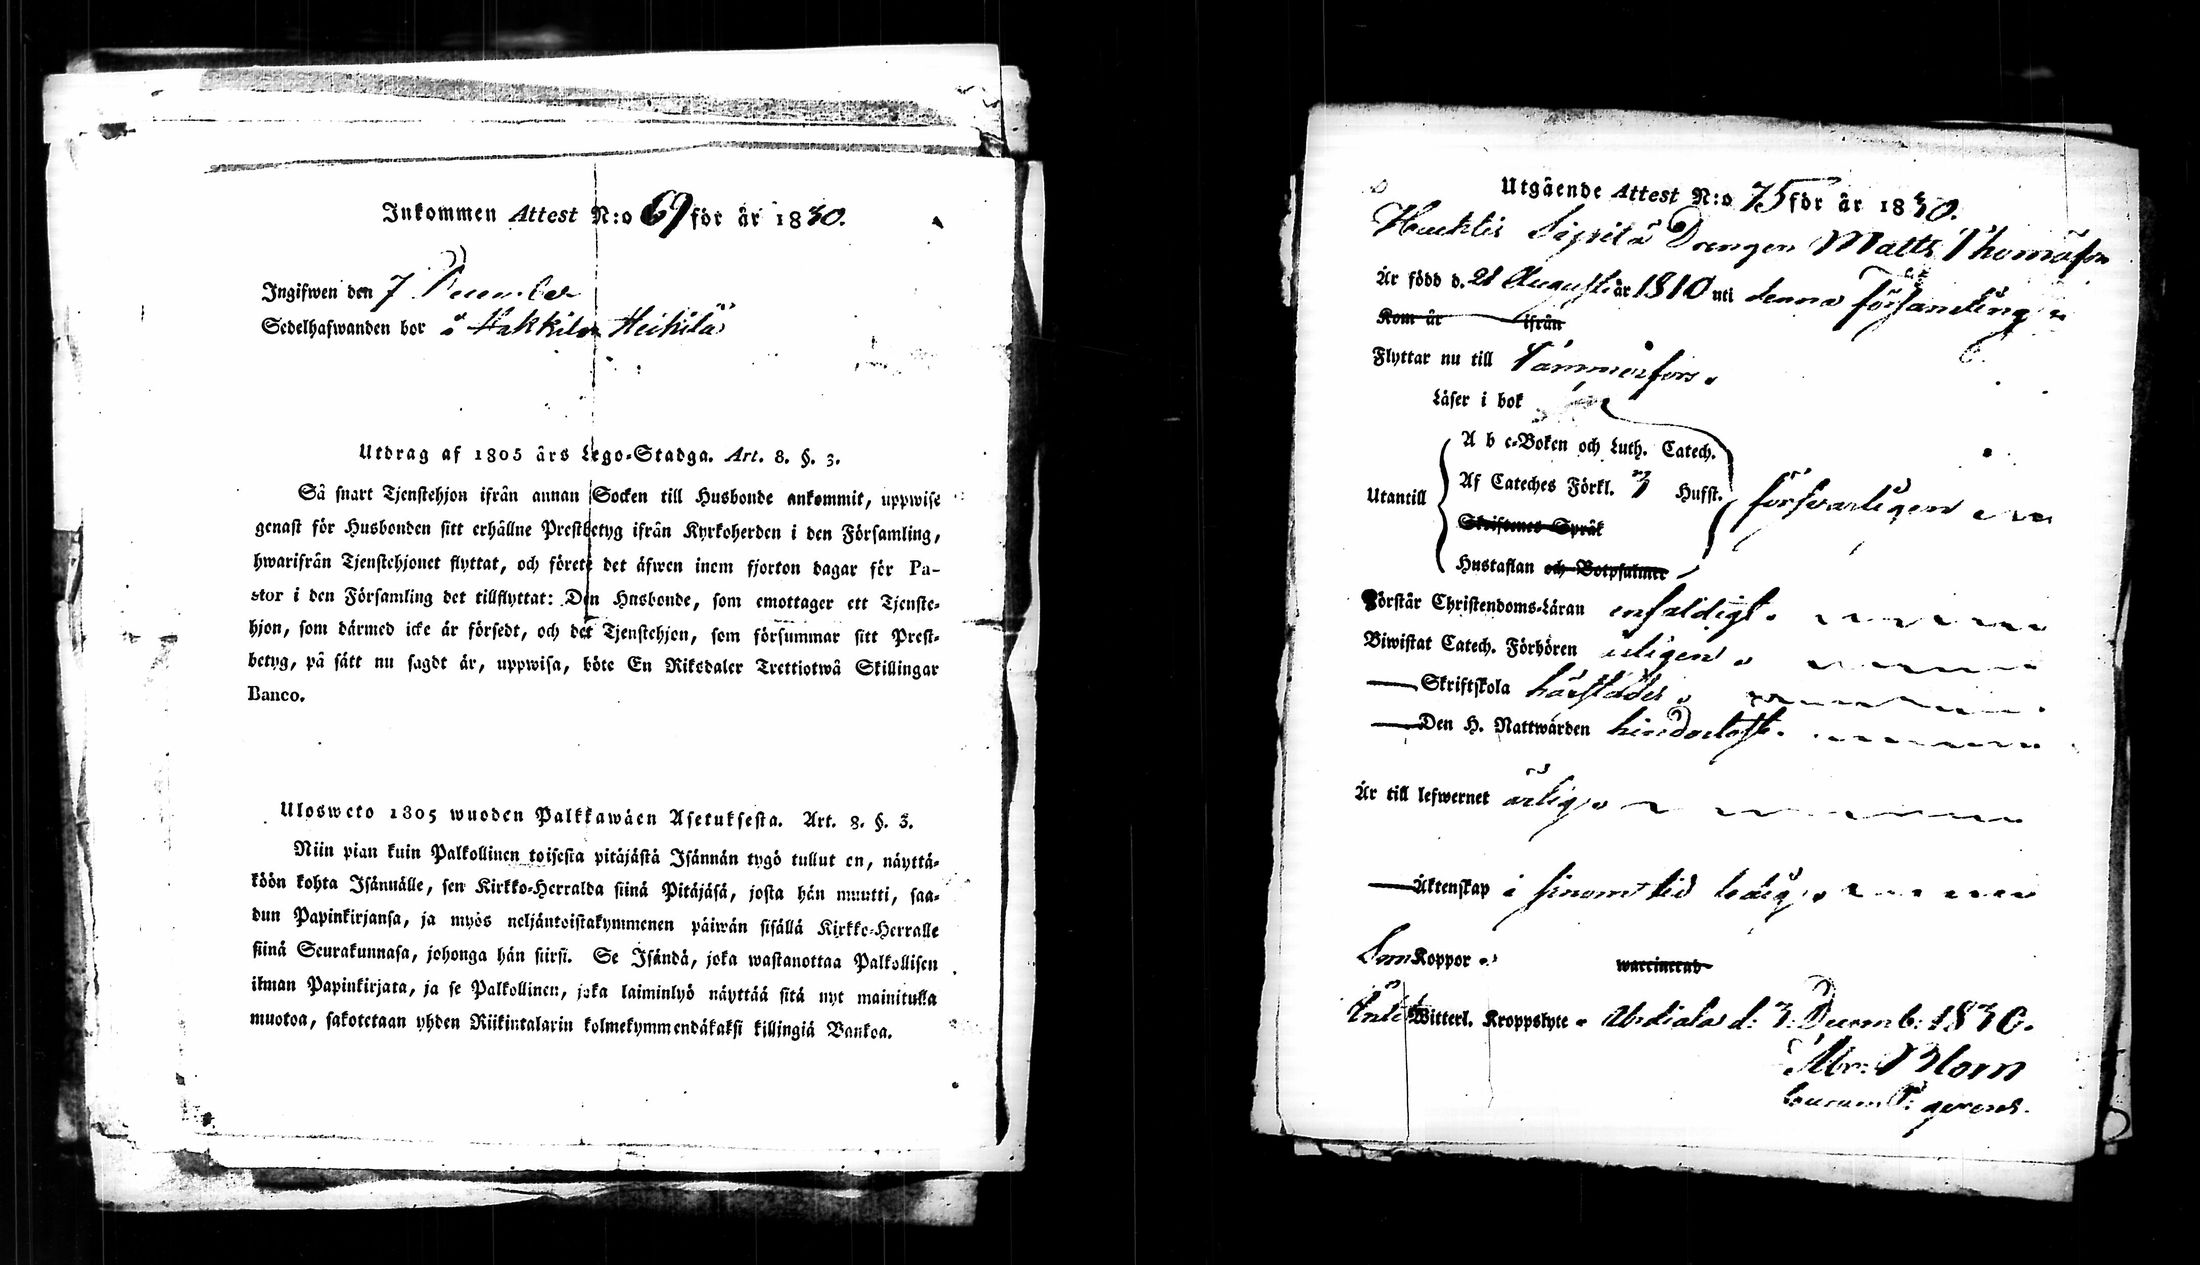 Inkommen Attest N:o 69 för år 1830.
Ingifwen den 7 December
Sedelhafwanden bor å Hakkila Heikilä
Utdrag af 1805 års Lego-Stadga. Art. 8. §. 3.
Så snart Tjenstehjon ifrån annan Socken till Husbonde ankommit, uppwise
genast för Husbonden sitt erhållne Prestbetyg ifrån Kyrkoherden i den Församling,
hwarifrån Tjenstehjonet flyttat, och förete det äfwen inom fjorton dagar för Pa-
stor i den Församling det tillflyttat: Den Husbonde, som emottager ett Tjenste-
hjon, som därmed icke är försedt, och det Tjenstehjon, som försummar sitt Prest-
betyg, på sätt nu sagdt är, uppwisa, böte En Riksdaler Trettiotwå Skillingar
Banco.
Ulosweto 1805 wuoden Palkkawäen Asetuksesta. Art. 8. §. 3.
Niin pian kuin Palkollinen toisesta pitäjästä Isännän tygö tullut on, näyttä-
köön kohta Isännälle, sen Kirkko-Herralda siinä Pitäjäsä, josta hän muutti, saa-
dun Papinkirjansa, ja myös neljäntoistakymmenen päiwän sisällä Kirkko-Herralle
siinä Seurakunnasa, johonga hän siirsi. Se Isändä, joka wastanottaa Palkollisen
ilman Papinkirjata, ja se Palkollinen, joka laiminlyö näyttää sitä nyt mainitulla
muotoa, sakotetaan yhden Riikintalarin kolmekymmendäkaksi killingiä Bankoa.
Utgående Attest N:o 75 för år 1830.
Huchtis Sipilä Drengen Matts Thomasson
Är född d. 21 Augusti år 1810 uti denna Församling
Kom år ifrån
Flyttar nu till Tammerfors.
Läser i bok
A b c-Boken och Luth. Catech.
Utantill Af Cateches Förkl. 3 Hufst. försvarligen
Skriftenes Språk
Hustaflan och Botpsalmer
Förstår Christendoms-Läran enfaldigt.
Biwistat Catech. Förhören
Skriftskola
Den H. Nattwarden
Är till lefwernet ärlig.
Äktenskap i sinom tid ledig.
Koppor
warcinerad
Witterl. Kroppslyte. Urdiala d: 3 Decemb: 1830.
Abr: Blom